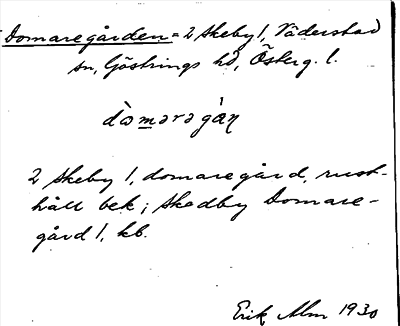 Domaregården = 2 Skeby 1, Väderstad
sn, Göstrings hd, Österg. l.
dòmaragàn
2 Skeby 1, domaregård, rust-
håll bek; Skedby Domare-
gård 1, kb.
Erik Alm 1930